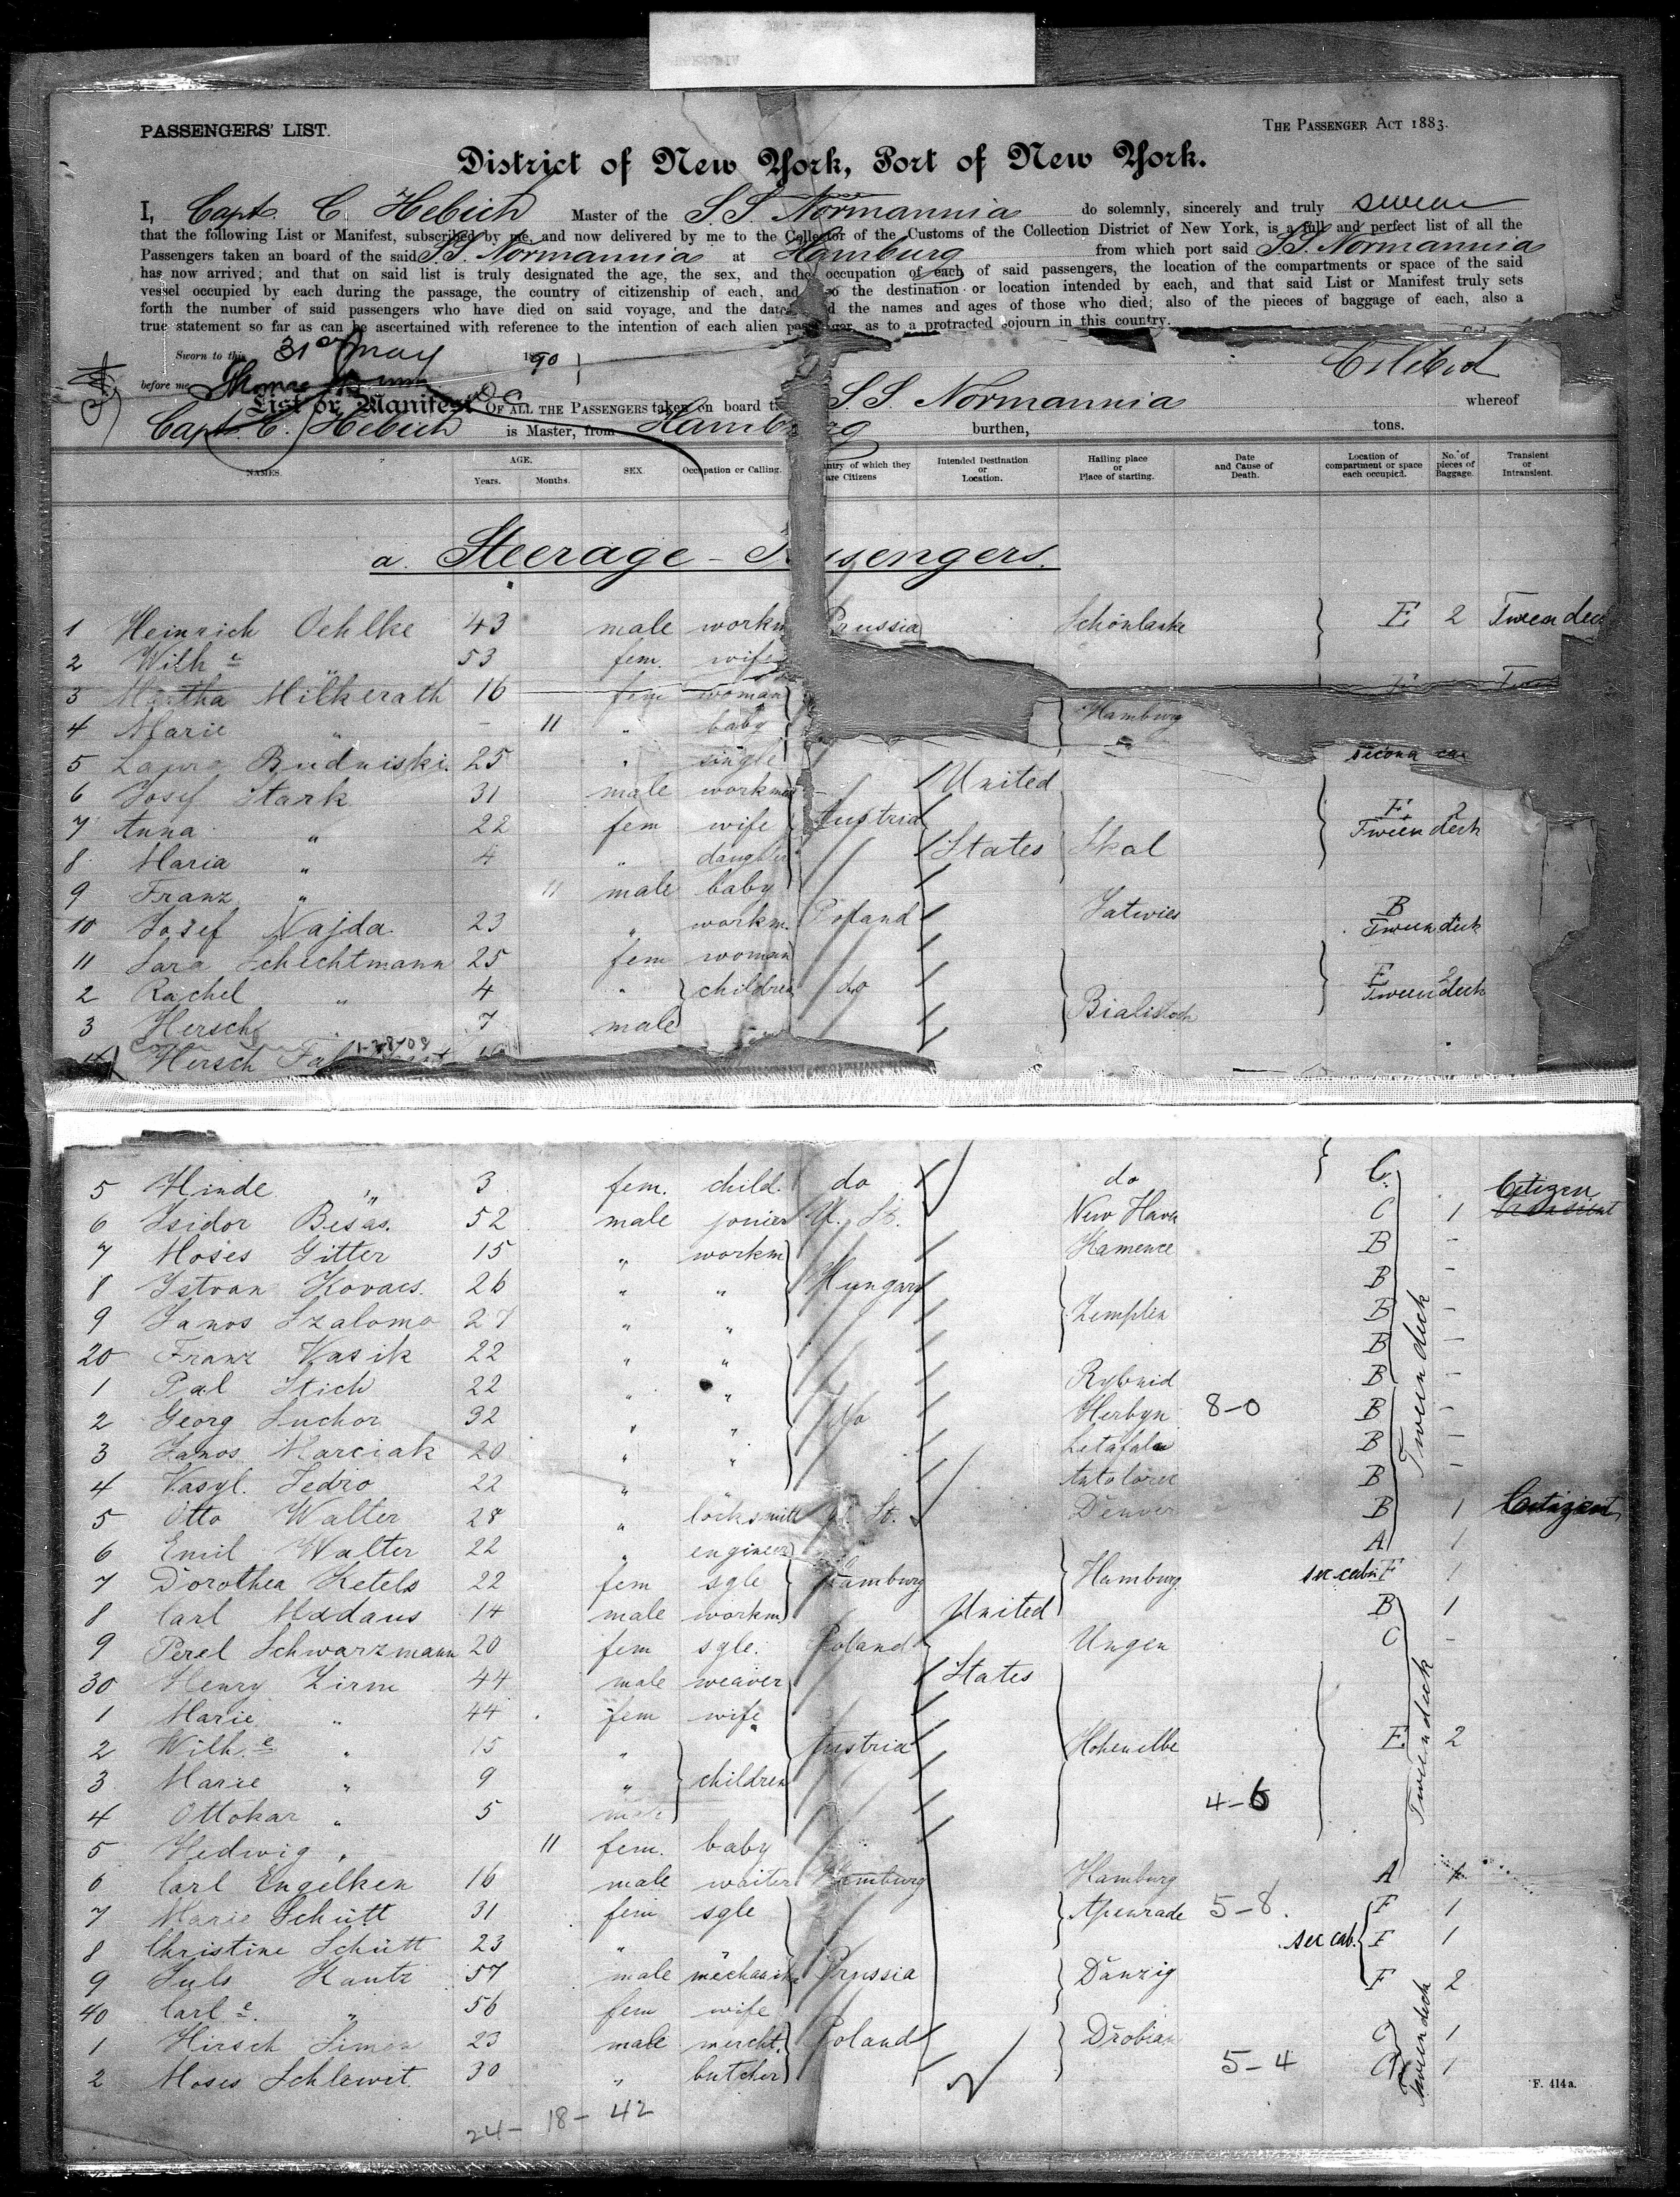 PASSENGERS' LIST.
THE PASSENGER ACT 1883.
District of New York, Port of New York.
I, Capt. C. Hebich Master of the S.S. Normannia do solemnly, sincerely and truly swear
that the following List or Manifest, subscribed by me, and now delivered by me to the Collector of the Customs of the Collection District of New York, is a full and perfect list of all the
Passengers taken on board of the said S.S. Normannia at Hamburg from which port said S.S. Normannia
has now arrived; and that on said list is truly designated the age, the sex, and the occupation of each of said passengers, the location of the compartments or space of the said
vessel occupied by each during the passage, the country of citizenship of each, and the destination or location intended by each, and that said List or Manifest truly sets
forth the number of said passengers who have died on said voyage, and the names and ages of those who died; also of the pieces of baggage of each, also a
true statement so far as can be ascertained with reference to the intention of each alien as to a protracted sojourn in this country.
Sworn to this 31 May 1890
before me Thomas
List or Manifest OF ALL THE PASSENGERS taken on board S.S. Normannia whereof
Capt. C. Hebich is Master, from Hamburg burthen, tons.
NAMES. AGE. Years. Months. SEX. Occupation or Calling. Country of which they are Citizens Intended Destination or Location. Hailing place or Place of starting. Date and Cause of Death. Location of compartment or space each occupied. No. of pieces of Baggage. Transient or Intransient.
a. Steerage - Passengers.
1 Heinrich Oehlke 43 male workm Prussia Schönlanke E 2 Tween deck
2 Wilhe " 53 fem. wife
3 Martha Milkerath 16 fem woman
4 Marie " - 11 " baby Hamburg
5 Budwiski. 25 " single second
6 Josef Stark 31 male workman United
7 Anna " 22 fem wife Austria E 2 Tween deck
8 Maria " 4 " daughter States Skal
9 Franz " 11 male baby
10 Josef Najda 23 " workm. Poland B Tween deck
11 Sara Schechtmann 25 fem woman
2 Rachel " 4 " children do E 2 Tween deck
3 Hersch 7 male Bialistock
1-28-08
Hersch
5 Hinde " 3 fem. child. do do C.
6 Isidor Besas. 52 male joiner U. St. New Haven C 1 Citizen
7 Moses Gitter 15 " workm Kamence B -
8 Istvan Kovacs. 26 " " Hungary B -
9 Janos Szalomo 27 " " Zemplin B -
20 Franz Vasik 22 " " B -
1 Pal Stich 22 " " B -
2 Georg Suchor 32 " " do Herbyn 8-0 B -
3 Janos Marciak 20 " " B -
4 Vasyl. Fedro 22 " B
5 Otto Walter 28 " locksmith U. St. Denver B 1 Citizen
6 Emil Walter 22 " engineer A 1
7 Dorothea Ketels 22 fem sgle Hamburg Hamburg sec cabin F 1
8 Carl Madaus 14 male workm United B 1
9 Perel Schwarzmann 20 fem sgle. Poland Ungen C -
30 Henry Zirm 44 male weaver States
1 Marie " 44 fem wife
2 Wilhe " 15 " Austria Hohenelbe E 2
3 Marie " 9 " children
4 Ottokar " 5 male 4-6
5 Hedwig " 11 fem. baby
6 Carl Engelken 16 male waiter Hamburg Hamburg A 1
7 Marie Schütt 31 fem sgle Apenrade 5-8. F 1
8 Christine Schütt 23 " " sec cab. F 1
9 Juls Kautz 57 male mechanike Prussia Danzig F 2
40 Carle. " 56 fem wife
1 Hirsch Simon 23 male mercht. Poland Drobian C 1
2 Moses Schlewit 30 " butcher 5-4 C 1
Tween deck
Tween deck
Tween deck
F. 414a.
24- 18- 42